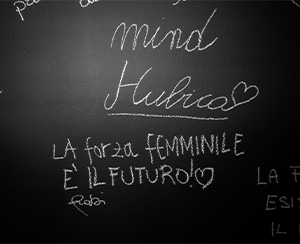 mind
Hubica♡
LA forza FEMMINILE
È IL FUTURO!♡
LA F
ESI
IL